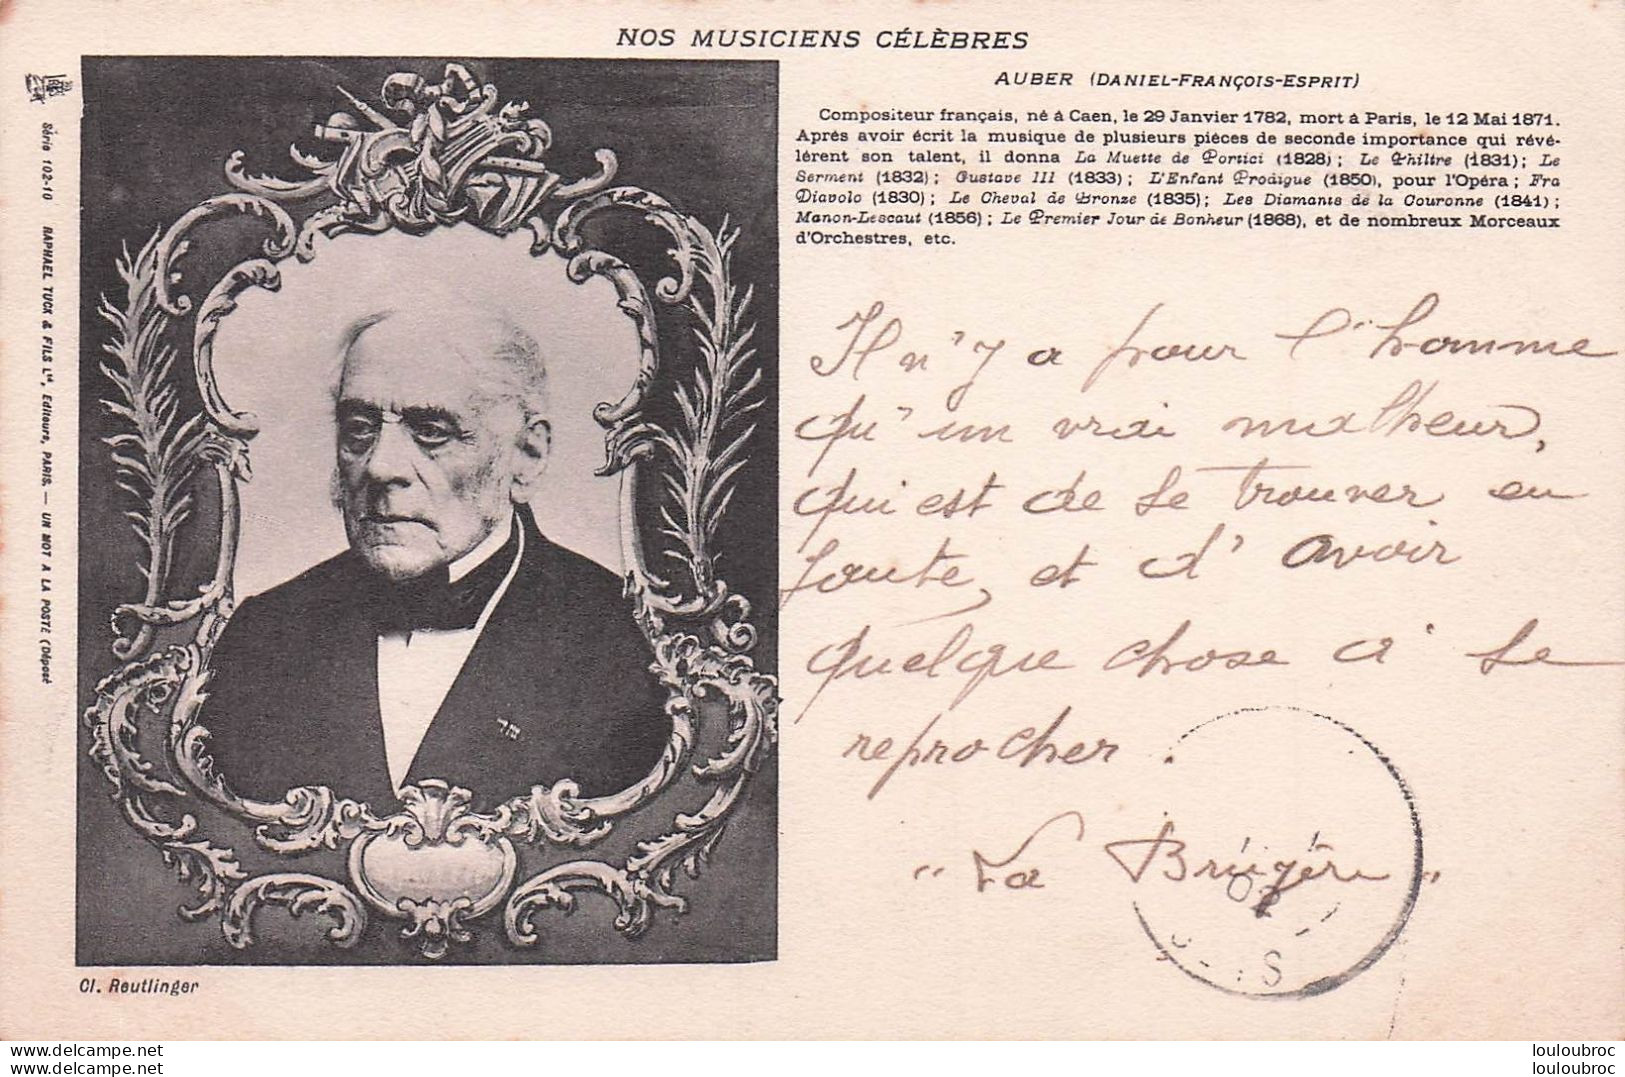 NOS MUSICIENS CÉLÈBRES
AUBER (DANIEL-FRANÇOIS-ESPRIT)
Compositeur français, né à Caen, le 29 Janvier 1782, mort à Paris, le 12 Mai 1871.
Après avoir écrit la musique de plusieurs pièces de seconde importance qui révé-
lèrent son talent, il donna La Muette de Portici (1828) ; Le Philtre (1831) ; Le
Serment (1832) ; Gustave III (1833) ; L'Enfant Prodigue (1850), pour l'Opéra ; Fra
Diavolo (1830) ; Le Cheval de Bronze (1835) ; Les Diamants de la Couronne (1841) ;
Manon-Lescaut (1856) ; Le Premier Jour de Bonheur (1868), et de nombreux Morceaux
d'Orchestres, etc.
Il n'y a pour l'homme
qu'un vrai malheur,
qui est de se trouver en
faute, et d'avoir
quelque chose à se
reprocher.
"La Bruyère"
02
Série 102-10 RAPHAEL TUCK & FILS Ltd, Editeurs, PARIS. — UN MOT A LA POSTE (Déposé
Cl. Reutlinger
delcampe.net
louloubroc
louloubroc